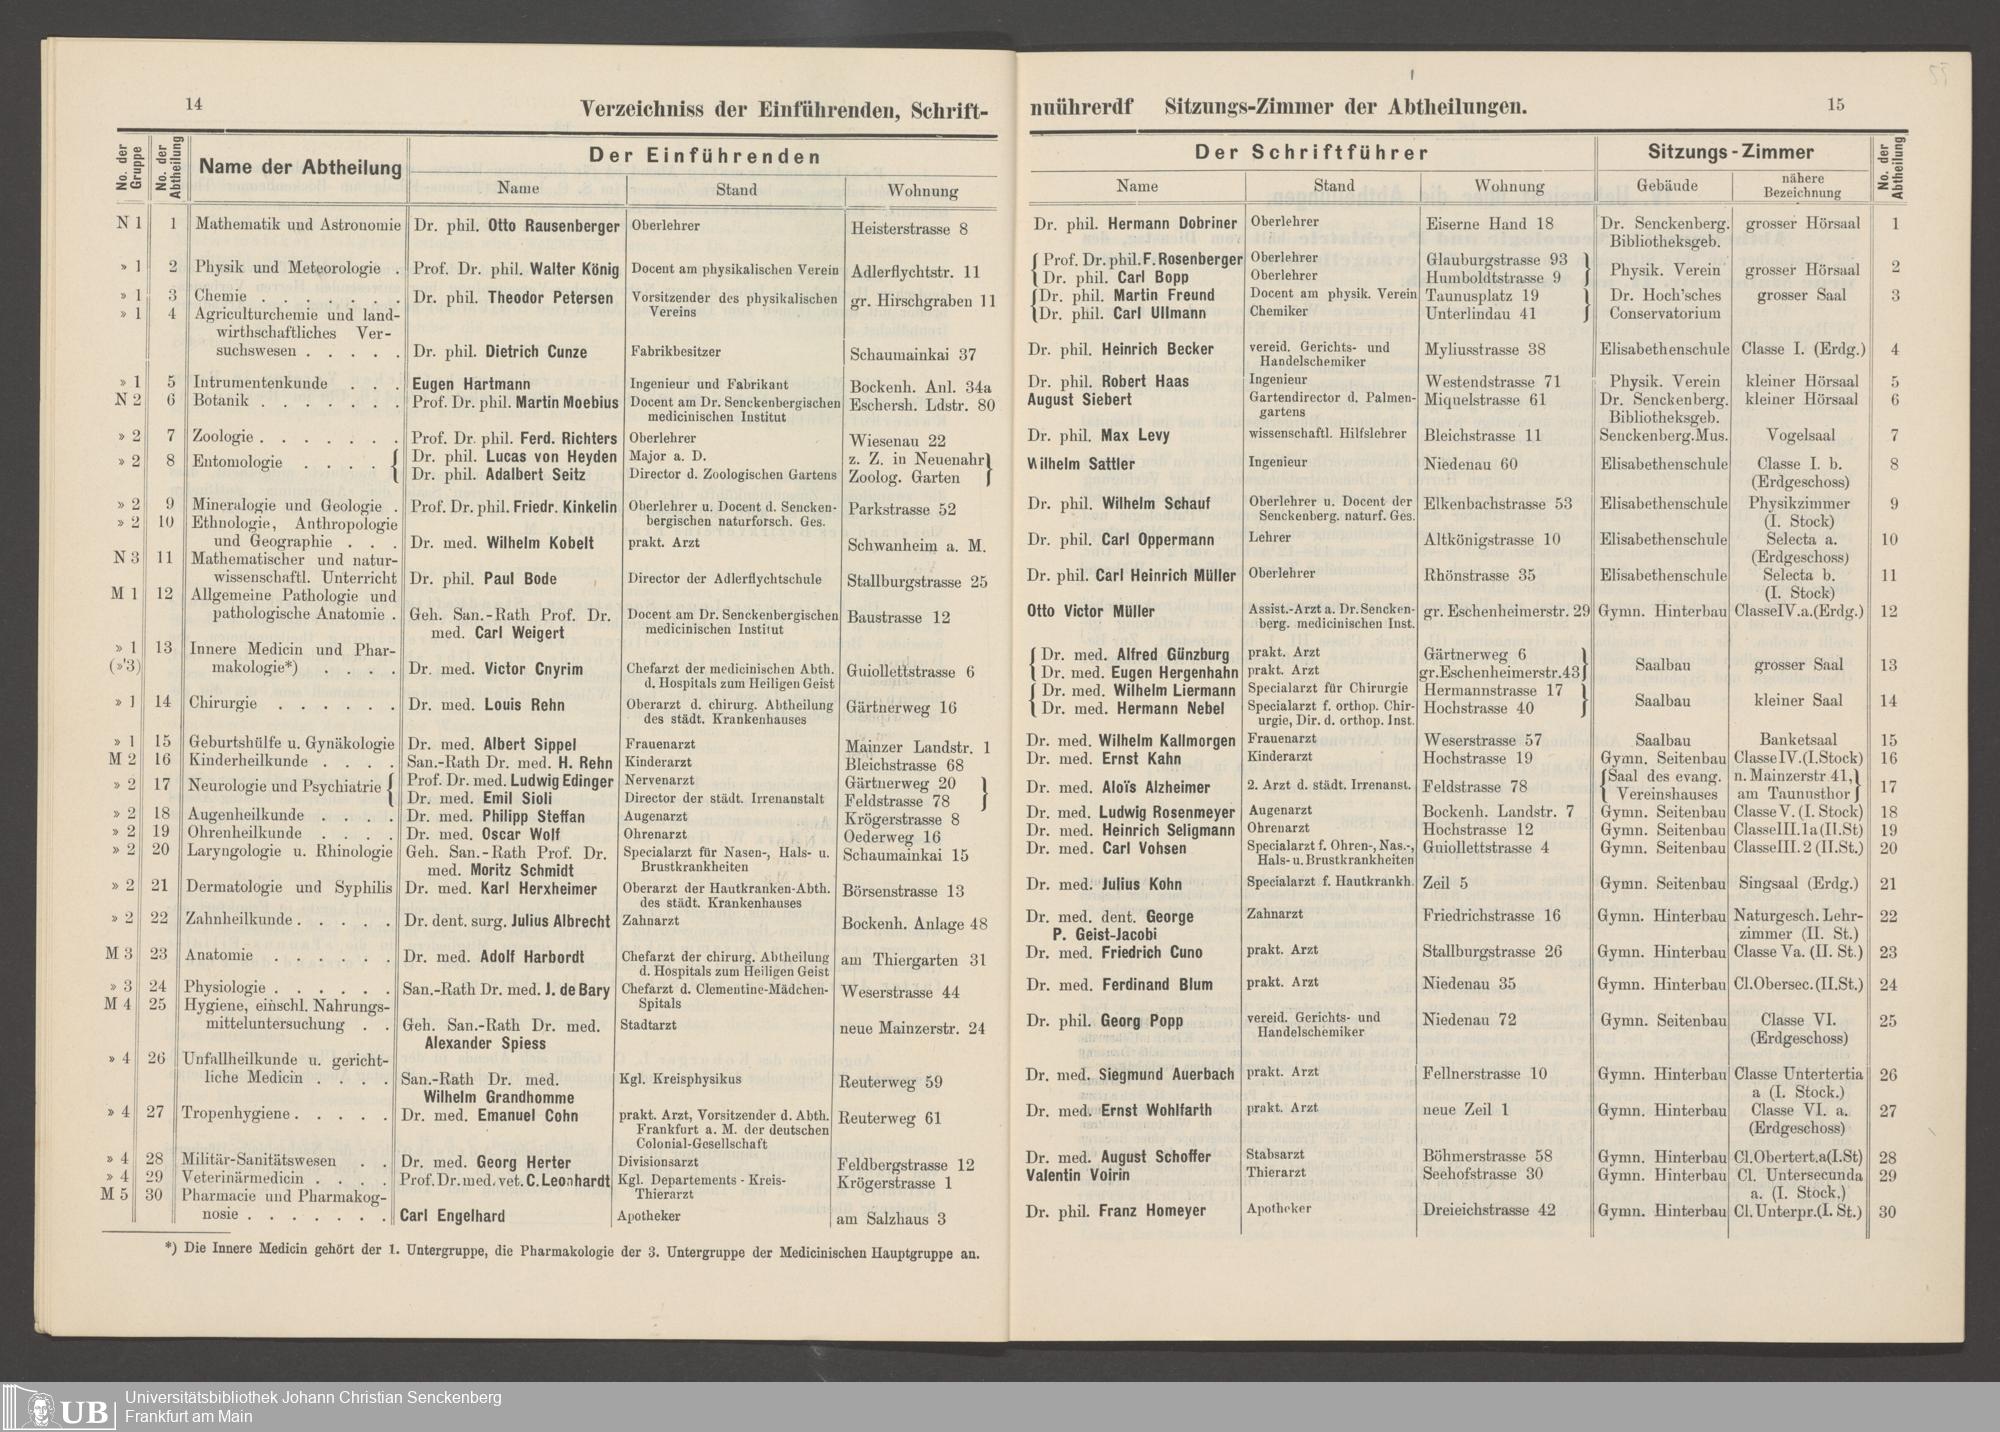 14
Verzeichniss der Einführenden, Schrift-
No. der Gruppe | No. der Abtheilung | Name der Abtheilung | Der Einführenden
Name | Stand | Wohnung
N 1 | 1 | Mathematik und Astronomie | Dr. phil. Otto Rausenberger | Oberlehrer | Heisterstrasse 8
» 1 | 2 | Physik und Meteorologie . | Prof. Dr. phil. Walter König | Docent am physikalischen Verein | Adlerflychtstr. 11
» 1 | 3 | Chemie . . . . . . . | Dr. phil. Theodor Petersen | Vorsitzender des physikalischen | gr. Hirschgraben 11
» 1 | 4 | Agriculturchemie und land- | Vereins
wirthschaftliches Ver-
suchswesen . . . . . | Dr. phil. Dietrich Cunze | Fabrikbesitzer | Schaumainkai 37
» 1 | 5 | Intrumentenkunde . . . | Eugen Hartmann | Ingenieur und Fabrikant | Bockenh. Anl. 34a
N 2 | 6 | Botanik . . . . . . . | Prof. Dr. phil. Martin Moebius | Docent am Dr. Senckenbergischen | Eschersh. Ldstr. 80
medicinischen Institut
» 2 | 7 | Zoologie . . . . . . . | Prof. Dr. phil. Ferd. Richters | Oberlehrer | Wiesenau 22
» 2 | 8 | Entomologie . . . . { | Dr. phil. Lucas von Heyden | Major a. D. | z. Z. in Neuenahr }
Dr. phil. Adalbert Seitz | Director d. Zoologischen Gartens | Zoolog. Garten
» 2 | 9 | Mineralogie und Geologie . | Prof. Dr. phil. Friedr. Kinkelin | Oberlehrer u. Docent d. Sencken- | Parkstrasse 52
» 2 | 10 | Ethnologie, Anthropologie | bergischen naturforsch. Ges.
und Geographie . . . | Dr. med. Wilhelm Kobelt | prakt. Arzt | Schwanheim a. M.
N 3 | 11 | Mathematischer und natur-
wissenschaftl. Unterricht | Dr. phil. Paul Bode | Director der Adlerflychtschule | Stallburgstrasse 25
M 1 | 12 | Allgemeine Pathologie und
pathologische Anatomie . | Geh. San.-Rath Prof. Dr. | Docent am Dr. Senckenbergischen | Baustrasse 12
med. Carl Weigert | medicinischen Institut
» 1 | 13 | Innere Medicin und Phar-
(» 3) | makologie*) . . . . | Dr. med. Victor Cnyrim | Chefarzt der medicinischen Abth. | Guiollettstrasse 6
d. Hospitals zum Heiligen Geist
» 1 | 14 | Chirurgie . . . . . . | Dr. med. Louis Rehn | Oberarzt d. chirurg. Abtheilung | Gärtnerweg 16
des städt. Krankenhauses
» 1 | 15 | Geburtshülfe u. Gynäkologie | Dr. med. Albert Sippel | Frauenarzt | Mainzer Landstr. 1
M 2 | 16 | Kinderheilkunde . . . . | San.-Rath Dr. med. H. Rehn | Kinderarzt | Bleichstrasse 68
» 2 | 17 | Neurologie und Psychiatrie { | Prof. Dr. med. Ludwig Edinger | Nervenarzt | Gärtnerweg 20 }
Dr. med. Emil Sioli | Director der städt. Irrenanstalt | Feldstrasse 78
» 2 | 18 | Augenheilkunde . . . . | Dr. med. Philipp Steffan | Augenarzt | Krögerstrasse 8
» 2 | 19 | Ohrenheilkunde . . . . | Dr. med. Oscar Wolf | Ohrenarzt | Oederweg 16
» 2 | 20 | Laryngologie u. Rhinologie | Geh. San.-Rath Prof. Dr. | Specialarzt für Nasen-, Hals- u. | Schaumainkai 15
med. Moritz Schmidt | Brustkrankheiten
» 2 | 21 | Dermatologie und Syphilis | Dr. med. Karl Herxheimer | Oberarzt der Hautkranken-Abth. | Börsenstrasse 13
des städt. Krankenhauses
» 2 | 22 | Zahnheilkunde . . . . . | Dr. dent. surg. Julius Albrecht | Zahnarzt | Bockenh. Anlage 48
M 3 | 23 | Anatomie . . . . . . | Dr. med. Adolf Harbordt | Chefarzt der chirurg. Abtheilung | am Thiergarten 31
d. Hospitals zum Heiligen Geist
» 3 | 24 | Physiologie . . . . . . | San.-Rath Dr. med. J. de Bary | Chefarzt d. Clementine-Mädchen- | Weserstrasse 44
M 4 | 25 | Hygiene, einschl. Nahrungs- | Spitals
mitteluntersuchung . . | Geh. San.-Rath Dr. med. | Stadtarzt | neue Mainzerstr. 24
Alexander Spiess
» 4 | 26 | Unfallheilkunde u. gericht-
liche Medicin . . . . | San.-Rath Dr. med. | Kgl. Kreisphysikus | Reuterweg 59
Wilhelm Grandhomme
» 4 | 27 | Tropenhygiene . . . . . | Dr. med. Emanuel Cohn | prakt. Arzt, Vorsitzender d. Abth. | Reuterweg 61
Frankfurt a. M. der deutschen
Colonial-Gesellschaft
» 4 | 28 | Militär-Sanitätswesen . . | Dr. med. Georg Herter | Divisionsarzt | Feldbergstrasse 12
» 4 | 29 | Veterinärmedicin . . . . | Prof. Dr. med. vet. C. Leonhardt | Kgl. Departements-Kreis- | Krögerstrasse 1
M 5 | 30 | Pharmacie und Pharmakog- | Thierarzt
nosie . . . . . . . | Carl Engelhard | Apotheker | am Salzhaus 3
*) Die Innere Medicin gehört der 1. Untergruppe, die Pharmakologie der 3. Untergruppe der Medicinischen Hauptgruppe an.
nuührerdf Sitzungs-Zimmer der Abtheilungen.
15
Der Schriftführer | Sitzungs-Zimmer | No. der Abtheilung
Name | Stand | Wohnung | Gebäude | nähere Bezeichnung
Dr. phil. Hermann Dobriner | Oberlehrer | Eiserne Hand 18 | Dr. Senckenberg. | grosser Hörsaal | 1
Bibliotheksgeb.
{ Prof. Dr. phil. F. Rosenberger | Oberlehrer | Glauburgstrasse 93 } | Physik. Verein | grosser Hörsaal | 2
Dr. phil. Carl Bopp | Oberlehrer | Humboldtstrasse 9
{ Dr. phil. Martin Freund | Docent am physik. Verein | Taunusplatz 19 } | Dr. Hoch'sches | grosser Saal | 3
Dr. phil. Carl Ullmann | Chemiker | Unterlindau 41 | Conservatorium
Dr. phil. Heinrich Becker | vereid. Gerichts- und | Myliusstrasse 38 | Elisabethenschule | Classe I. (Erdg.) | 4
Handelschemiker
Dr. phil. Robert Haas | Ingenieur | Westendstrasse 71 | Physik. Verein | kleiner Hörsaal | 5
August Siebert | Gartendirector d. Palmen- | Miquelstrasse 61 | Dr. Senckenberg. | kleiner Hörsaal | 6
gartens | Bibliotheksgeb.
Dr. phil. Max Levy | wissenschaftl. Hilfslehrer | Bleichstrasse 11 | Senckenberg. Mus. | Vogelsaal | 7
Wilhelm Sattler | Ingenieur | Niedenau 60 | Elisabethenschule | Classe I. b. | 8
(Erdgeschoss)
Dr. phil. Wilhelm Schauf | Oberlehrer u. Docent der | Elkenbachstrasse 53 | Elisabethenschule | Physikzimmer | 9
Senckenberg. naturf. Ges. | (I. Stock)
Dr. phil. Carl Oppermann | Lehrer | Altkönigstrasse 10 | Elisabethenschule | Selecta a. | 10
(Erdgeschoss)
Dr. phil. Carl Heinrich Müller | Oberlehrer | Rhönstrasse 35 | Elisabethenschule | Selecta b. | 11
(I. Stock)
Otto Victor Müller | Assist.-Arzt a. Dr. Sencken- | gr. Eschenheimerstr. 29 | Gymn. Hinterbau | Classe IV. a. (Erdg.) | 12
berg. medicinischen Inst.
{ Dr. med. Alfred Günzburg | prakt. Arzt | Gärtnerweg 6 } | Saalbau | grosser Saal | 13
Dr. med. Eugen Hergenhahn | prakt. Arzt | gr. Eschenheimerstr. 43
{ Dr. med. Wilhelm Liermann | Specialarzt für Chirurgie | Hermannstrasse 17 } | Saalbau | kleiner Saal | 14
Dr. med. Hermann Nebel | Specialarzt f. orthop. Chir- | Hochstrasse 40
urgie, Dir. d. orthop. Inst.
Dr. med. Wilhelm Kallmorgen | Frauenarzt | Weserstrasse 57 | Saalbau | Banketsaal | 15
Dr. med. Ernst Kahn | Kinderarzt | Hochstrasse 19 | Gymn. Seitenbau | Classe IV. (I. Stock) | 16
Dr. med. Aloïs Alzheimer | 2. Arzt d. städt. Irrenanst. | Feldstrasse 78 | { Saal des evang. | n. Mainzerstr. 41, } | 17
Vereinshauses | am Taunusthor
Dr. med. Ludwig Rosenmeyer | Augenarzt | Bockenh. Landstr. 7 | Gymn. Seitenbau | Classe V. (I. Stock) | 18
Dr. med. Heinrich Seligmann | Ohrenarzt | Hochstrasse 12 | Gymn. Seitenbau | Classe III. 1a (II. St) | 19
Dr. med. Carl Vohsen | Specialarzt f. Ohren-, Nas.-, | Guiollettstrasse 4 | Gymn. Seitenbau | Classe III. 2 (II. St.) | 20
Hals- u. Brustkrankheiten
Dr. med. Julius Kohn | Specialarzt f. Hautkrankh. | Zeil 5 | Gymn. Seitenbau | Singsaal (Erdg.) | 21
Dr. med. dent. George | Zahnarzt | Friedrichstrasse 16 | Gymn. Hinterbau | Naturgesch. Lehr- | 22
P. Geist-Jacobi | zimmer (II. St.)
Dr. med. Friedrich Cuno | prakt. Arzt | Stallburgstrasse 26 | Gymn. Hinterbau | Classe Va. (II. St.) | 23
Dr. med. Ferdinand Blum | prakt. Arzt | Niedenau 35 | Gymn. Hinterbau | Cl. Obersec. (II. St.) | 24
Dr. phil. Georg Popp | vereid. Gerichts- und | Niedenau 72 | Gymn. Seitenbau | Classe VI. | 25
Handelschemiker | (Erdgeschoss)
Dr. med. Siegmund Auerbach | prakt. Arzt | Fellnerstrasse 10 | Gymn. Hinterbau | Classe Untertertia | 26
a (I. Stock.)
Dr. med. Ernst Wohlfarth | prakt. Arzt | neue Zeil 1 | Gymn. Hinterbau | Classe VI. a. | 27
(Erdgeschoss)
Dr. med. August Schoffer | Stabsarzt | Böhmerstrasse 58 | Gymn. Hinterbau | Cl. Obertert. a (I. St) | 28
Valentin Voirin | Thierarzt | Seehofstrasse 30 | Gymn. Hinterbau | Cl. Untersecunda | 29
a. (I. Stock.)
Dr. phil. Franz Homeyer | Apotheker | Dreieichstrasse 42 | Gymn. Hinterbau | Cl. Unterpr. (I. St.) | 30
UB
Universitätsbibliothek Johann Christian Senckenberg
Frankfurt am Main